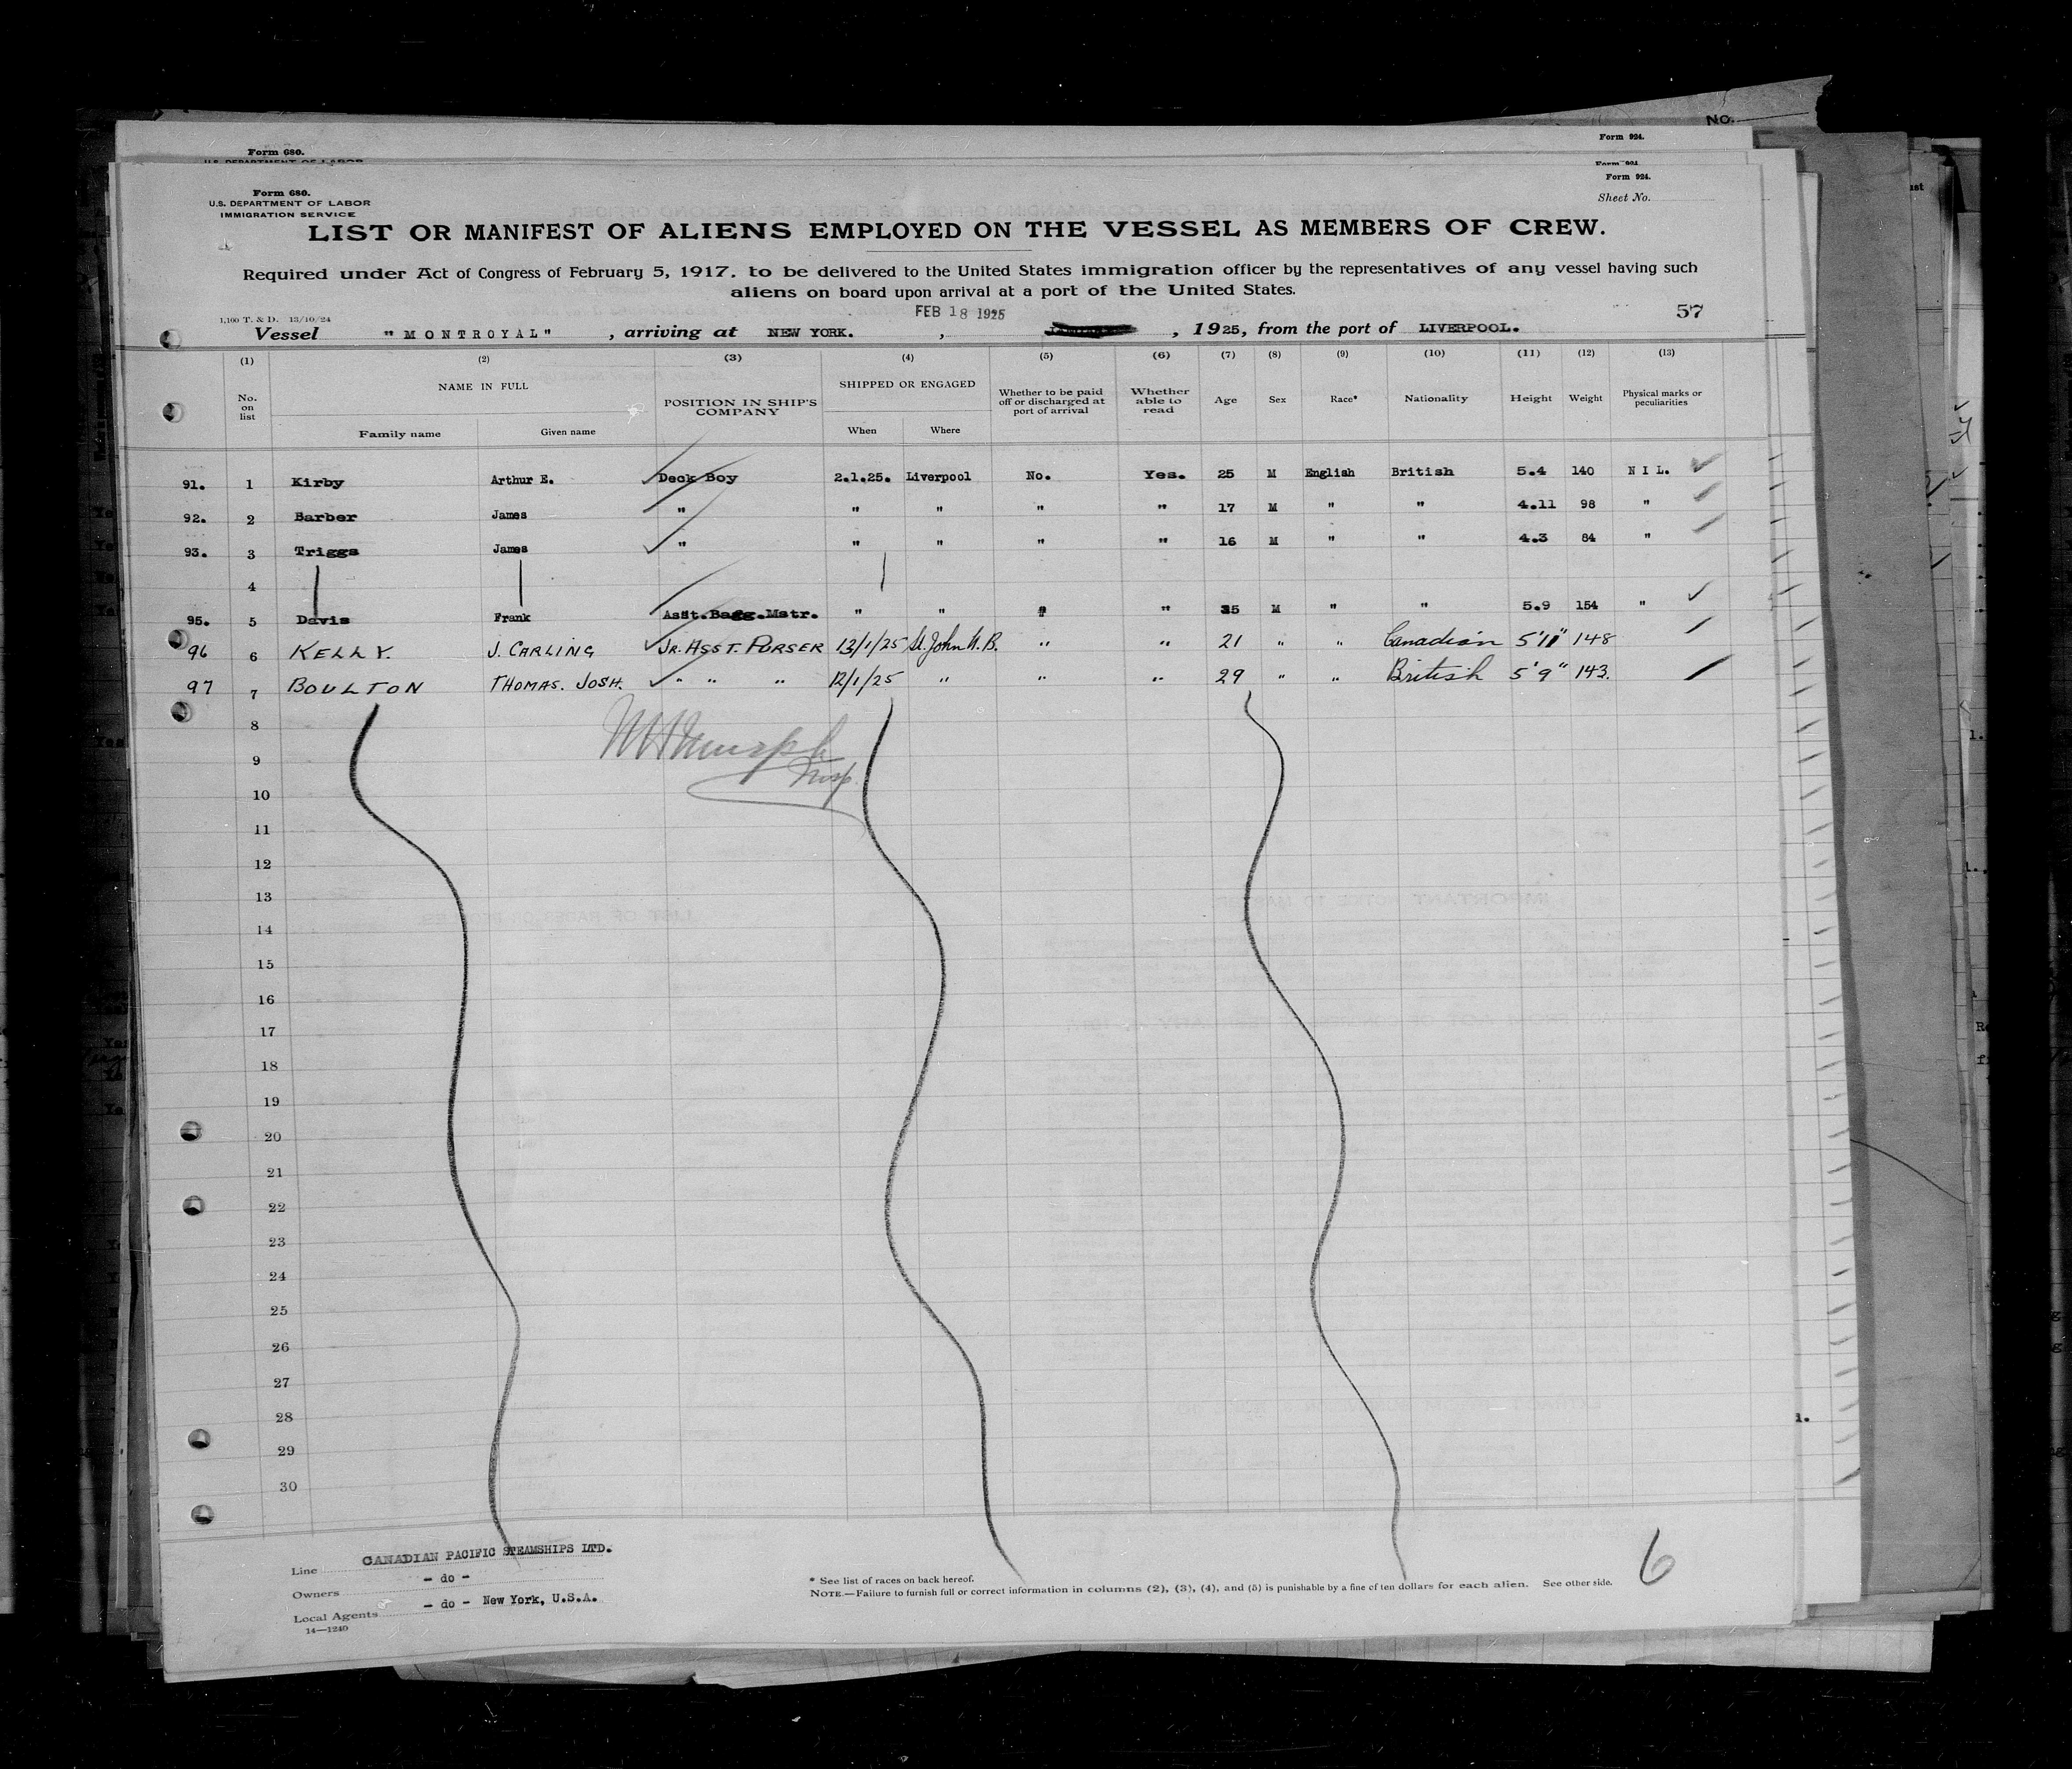 No.
Form 680.
Form 924.
Form 680.
Form 924.
U.S. DEPARTMENT OF LABOR
IMMIGRATION SERVICE
Sheet No.
LIST OR MANIFEST OF ALIENS EMPLOYED ON THE VESSEL AS MEMBERS OF CREW.
Required under Act of Congress of February 5, 1917, to be delivered to the United States immigration officer by the representatives of any vessel having such
aliens on board upon arrival at a port of the United States.
1,100 T. & D. 13/10/24
FEB 18 1925
57
Vessel "MONTROYAL", arriving at NEW YORK. , , 1925, from the port of LIVERPOOL.
(1) (2) (3) (4) (5) (6) (7) (8) (9) (10) (11) (12) (13)
No. on list NAME IN FULL Family name Given name POSITION IN SHIP'S COMPANY SHIPPED OR ENGAGED When Where Whether to be paid off or discharged at port of arrival Whether able to read Age Sex Race* Nationality Height Weight Physical marks or peculiarities
91. 1 Kirby Arthur E. Deck Boy 2.1.25. Liverpool No. Yes. 25 M English British 5.4 140 NIL.
92. 2 Barber James " " " " " 17 M " " 4.11 98 "
93. 3 Triggs James " " " " " 16 M " " 4.3 84 "
4
95. 5 Davis Frank Asst.Bagg.Mstr. " " " " 35 M " " 5.9 154 "
96 6 KELLY. J. CARLING JR. ASST. PURSER 13/1/25 St. John N.B. " " 21 " " Canadian 5'11" 148
97 7 BOULTON THOMAS. JOSH. " " " 12/1/25 " " " 29 " " British 5'9" 143.
8
9
10
11
12
13
14
15
16
17
18
19
20
21
22
23
24
25
26
27
28
29
30
Line CANADIAN PACIFIC STEAMSHIPS LTD.
Owners - do -
Local Agents - do - New York, U.S.A.
14—1240
* See list of races on back hereof.
NOTE.—Failure to furnish full or correct information in columns (2), (3), (4), and (5) is punishable by a fine of ten dollars for each alien. See other side.
6